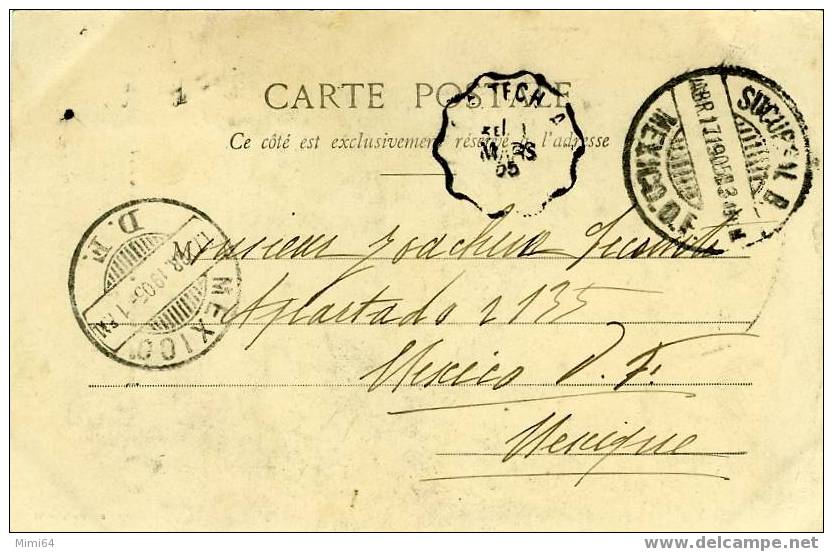 CARTE POSTALE
Ce côté est exclusivement réservé à l'adresse
TECH
MARS
05
SUCURSAL B
ABR 17 1905
MEXICO D.F.
MEXICO D.F.
Monsieur
Apartado 2135
Mexico D. F.
Mexique
Mimi64
www.delcampe.net